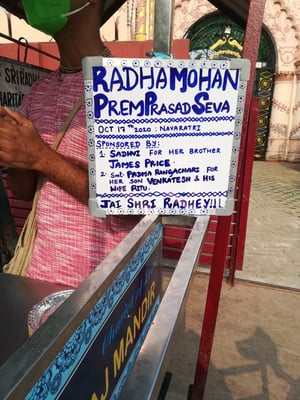 RADHAMOHAN
PREMPRASAD SEVA
OCT 17TH 2020 : NAVARATRI
SPONSORED BY:
1. SADHVI FOR HER BROTHER
JAMES PRICE.
2. Smt. PADMA RANGACHARI FOR
HER SON VENKATESH & HIS
WIFE RITU.
JAI SHRI RADHEY!!!
SRI RADHA
MANDIR